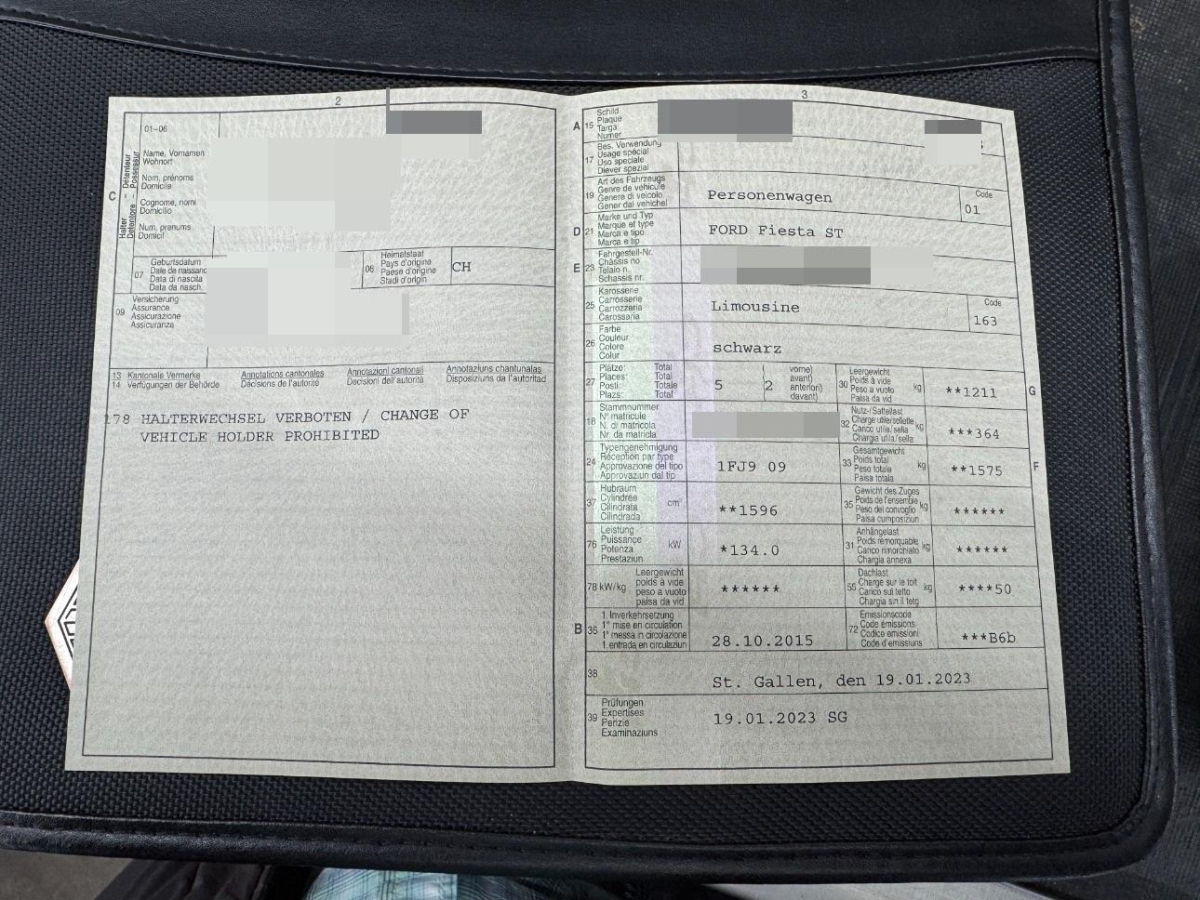 2
01-06
C
Halter - Détenteur
Detentore - Possessur
Name, Vornamen
Wohnort
Nom, prénoms
Domicile
Cognome, nomi
Domicilio
Num, prenums
Domicil
07
Geburtsdatum
Date de naissance
Data di nascita
Data da nasch.
08
Heimatstaat
Pays d'origine
Paese d'origine
Stadi d'origin
CH
09
Versicherung
Assurance
Assicurazione
Assicuranza
13 Kantonale Vermerke
14 Verfügungen der Behörde
Annotations cantonales
Décisions de l'autorité
Annotazioni cantonali
Decisioni dell'autorità
Annotaziuns chantunalas
Disposiziuns da l'autoritad
178 HALTERWECHSEL VERBOTEN / CHANGE OF
VEHICLE HOLDER PROHIBITED
3
A 15
Schild
Plaque
Targa
Numer
17
Bes. Verwendung
Usage spécial
Uso speciale
Diever spezial
19
Art des Fahrzeugs
Genre de véhicule
Genere di veicolo
Gener dal vehichel
Personenwagen
Code
01
D 21
Marke und Typ
Marque et type
Marca e tipo
Marca e tip
FORD Fiesta ST
E 23
Fahrgestell-Nr.
Châssis no
Telaio n.
Schassis nr.
25
Karosserie
Carrosserie
Carrozzeria
Carossaria
Limousine
Code
163
26
Farbe
Couleur
Colore
Colur
schwarz
27
Plätze: Total
Places: Total
Posti: Totale
Plazs: Total
5
2
vorne)
avant)
anteriori)
davant)
30
Leergewicht
Poids à vide
Peso a vuoto
Paisa da vid
kg
**1211
G
18
Stammnummer
N° matricule
N. di matricola
Nr. da matricla
32
Nutz-/Sattellast
Charge utile/sellette
Carico utile/sella
Chargia utila/sella
kg
***364
24
Typengenehmigung
Réception par type
Approvazione del tipo
Approvaziun dal tip
1FJ9 09
33
Gesamtgewicht
Poids total
Peso totale
Paisa totala
kg
**1575
F
37
Hubraum
Cylindrée
Cilindrata
Cilindrada
cm³
**1596
35
Gewicht des Zuges
Poids de l'ensemble
Peso del convoglio
Paisa cumposiziun
kg
******
76
Leistung
Puissance
Potenza
Prestaziun
kW
*134.0
31
Anhängelast
Poids remorquable
Carico rimorchiato
Chargia annexa
kg
******
78 kW/kg
Leergewicht
poids à vide
peso a vuoto
paisa da vid
******
55
Dachlast
Charge sur le toit
Carico sul tetto
Chargia sin il tetg
kg
****50
B 36
1. Inverkehrsetzung
1re mise en circulation
1a messa in circolazione
1. entrada en circulaziun
28.10.2015
72
Emissionscode
Code émissions
Codice emissioni
Code d'emissiuns
***B6b
38
St. Gallen, den 19.01.2023
39
Prüfungen
Expertises
Perizie
Examinaziuns
19.01.2023 SG